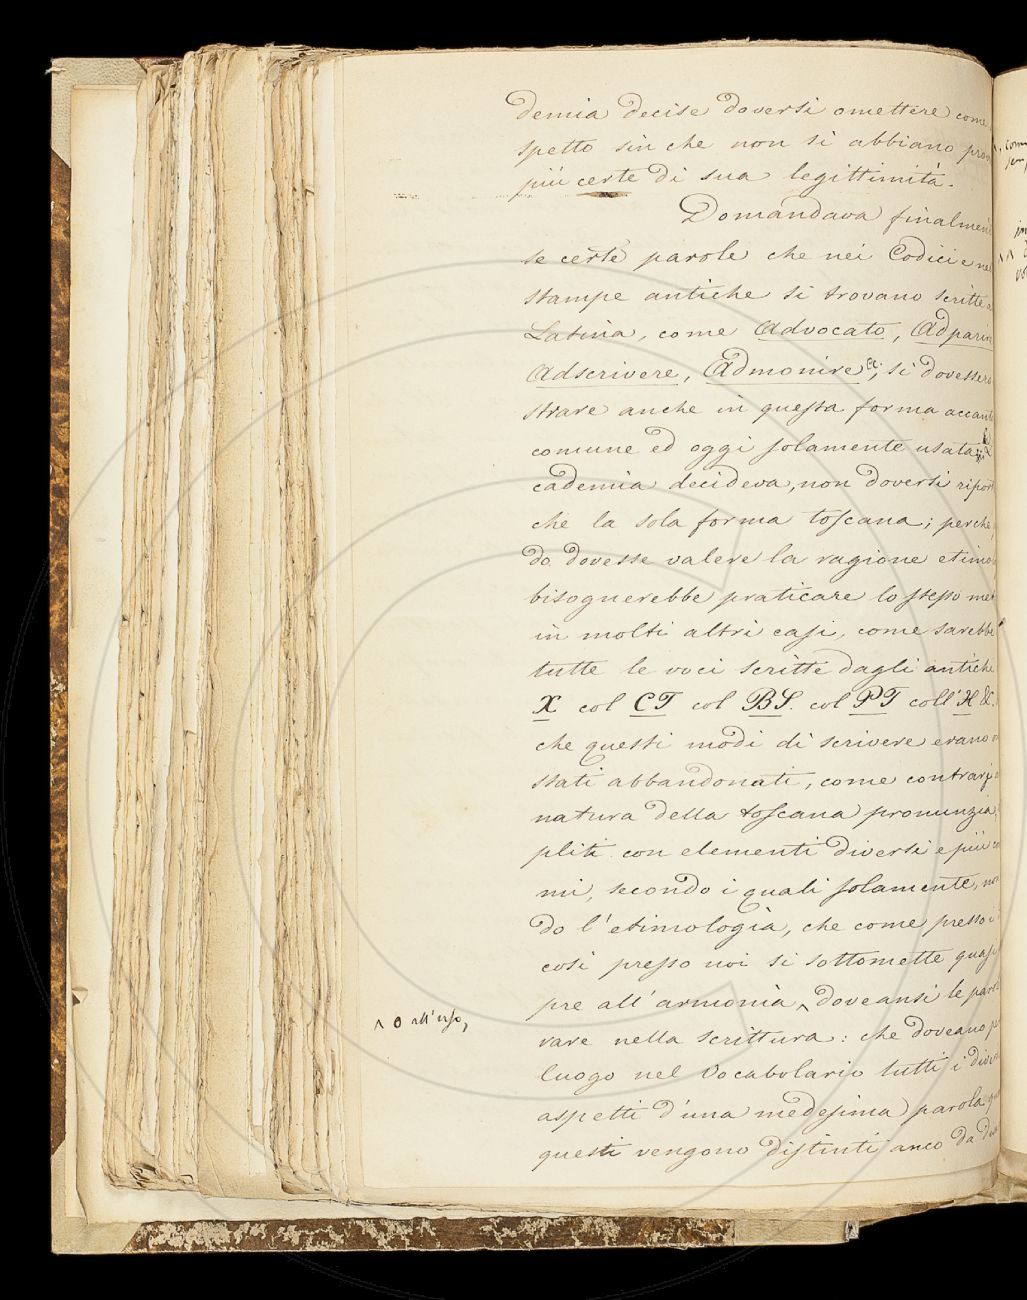 demia decise doversi omettere come
spetto sin che non si abbiano
più certe di sua legittimità.
Domandava
se certe parole che nei Codici e
stampe antiche si trovano scritte
Latina, come Advocato,
Adscrivere, Admonire &c, si
strare anche in questa forma
comune ed oggi solamente usata
cademia decideva, non doversi
che la sola forma toscana; perchè
do dovesse valere la ragione
bisognerebbe praticare lo stesso
in molti altri casi, come sarebbe
tutte le voci scritte dagli antichi
X col CT col BS. col PT coll'H &c.
che questi modi di scrivere erano
stati abbandonati, come contrarj
natura della toscana
pliti con elementi diversi e più
mi, secondo i quali solamente,
do l'etimologia, che come presso
così presso noi si sottomette
pre all'armonia ^ doveansi le
^ o all'uso,
vare nella scrittura: che doveano
luogo nel Vocabolario tutti i
aspetti d'una medesima parola
questi vengono distinti anco da